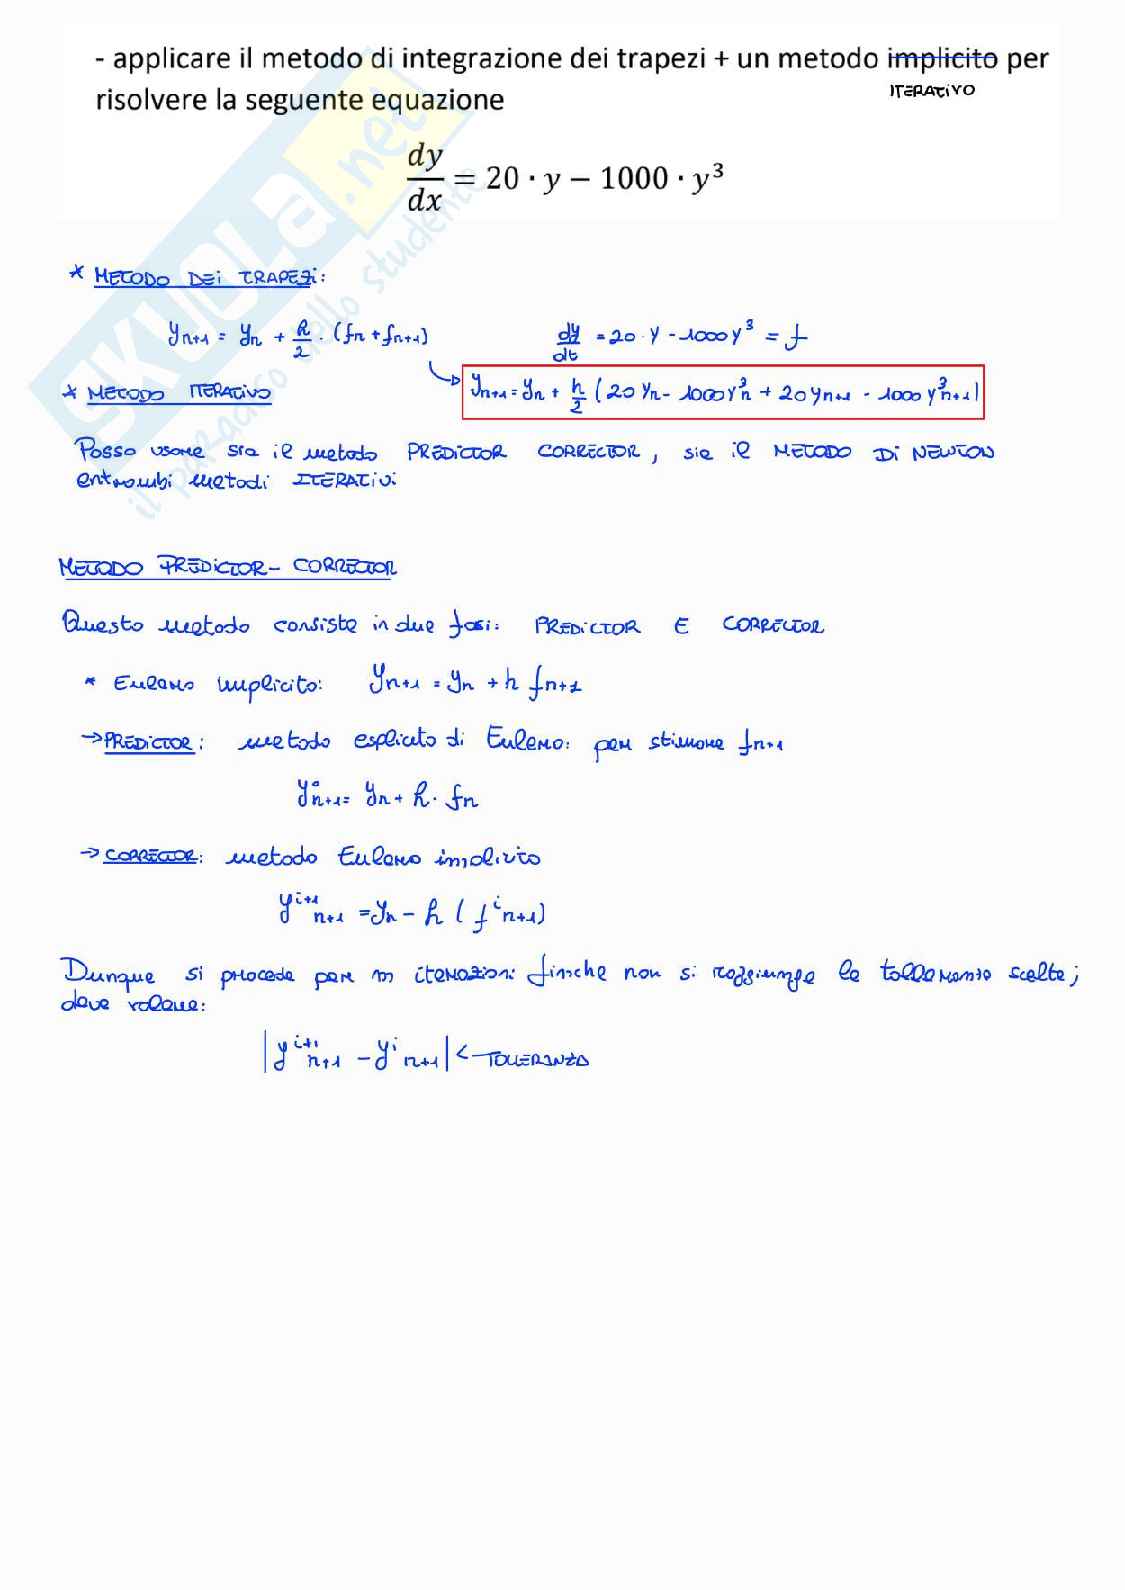 - applicare il metodo di integrazione dei trapezi + un metodo implicito per
ITERATIVO
risolvere la seguente equazione
dy/dx = 20 · y − 1000 · y³
SKUOLA.net
il paradiso dello studente
* METODO DEI TRAPEZI:
yn+1 = yn + h/2 · (fn + fn+1)    dy/dt = 20 · y - 1000 y³ = f
* METODO ITERATIVO    yn+1 = yn + h/2 (20 yn - 1000 y³n + 20 yn+1 - 1000 y³n+1)
Posso usare sia il metodo PREDICTOR CORRECTOR, sia il METODO DI NEWTON
entrambi metodi ITERATIVI
METODO PREDICTOR-CORRECTOR
Questo metodo consiste in due fasi: PREDICTOR E CORRECTOR
* Eulero implicito: yn+1 = yn + h fn+1
→ PREDICTOR: metodo esplicito di Eulero: per stimare fn+1
y°n+1 = yn + h · fn
→ CORRECTOR: metodo Eulero implicito
y^i+1 n+1 = yn - h (f^i n+1)
Dunque si procede per m iterazioni finche non si raggiunge la tolleranza scelta;
deve valere:
|y^i+1 n+1 - y^i n+1| < TOLLERANZA